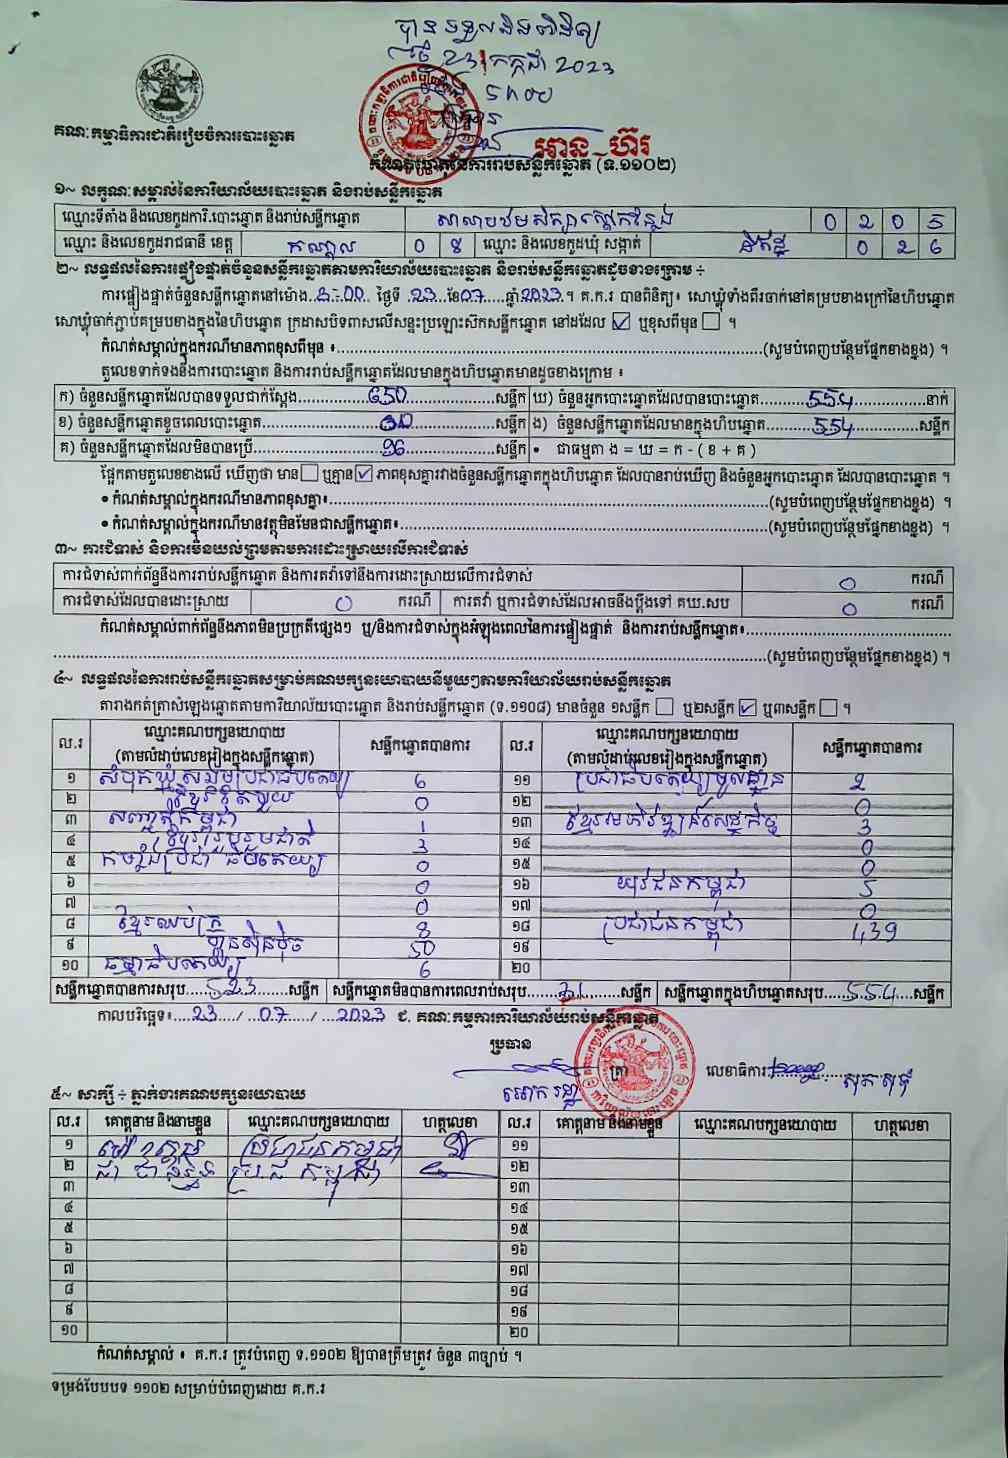 បានទទួលនិងពិនិត្យ
ថ្ងៃ 23 កក្កដា 2023
ប្រធាន
អាន ហ៊រ
គណៈកម្មាធិការជាតិរៀបចំការបោះឆ្នោត
កំណត់ហេតុនៃការរាប់សន្លឹកឆ្នោត (ទ.១១០២)
១~ លក្ខណៈសម្គាល់នៃការិយាល័យបោះឆ្នោត និងរាប់សន្លឹកឆ្នោត
ឈ្មោះទីតាំង និងលេខកូដការិ.បោះឆ្នោត និងរាប់សន្លឹកឆ្នោត 0 2 0 5
ឈ្មោះ និងលេខកូដរាជធានី ខេត្ត កណ្ដាល 0 8 ឈ្មោះ និងលេខកូដឃុំ សង្កាត់ 0 2 6
២~ លទ្ធផលនៃការផ្ទៀងផ្ទាត់ចំនួនសន្លឹកឆ្នោតតាមការិយាល័យបោះឆ្នោត និងរាប់សន្លឹកឆ្នោតដូចខាងក្រោម ÷
ការផ្ទៀងផ្ទាត់ចំនួនសន្លឹកឆ្នោតនៅម៉ោង 3:00 ថ្ងៃទី 23 ខែ 07 ឆ្នាំ 2023 ។ គ.ក.រ បានពិនិត្យ៖ សោឃ្លុំទាំងពីរចាក់នៅគម្របខាងក្រៅនៃហិបឆ្នោត
សោឃ្លុំចាក់ភ្ជាប់គម្របខាងក្នុងនៃហិបឆ្នោត ក្រដាសបិទពាសលើសន្ទះប្រឡោះស៊កសន្លឹកឆ្នោត នៅដដែល ☑ ឬខុសពីមុន ☐ ។
កំណត់សម្គាល់ក្នុងករណីមានភាពខុសពីមុន ៖ (សូមបំពេញបន្ថែមផ្នែកខាងខ្នង) ។
តួលេខទាក់ទងនឹងការបោះឆ្នោត និងការរាប់សន្លឹកឆ្នោតដែលមានក្នុងហិបឆ្នោតមានដូចខាងក្រោម ៖
ក) ចំនួនសន្លឹកឆ្នោតដែលបានទទួលជាក់ស្តែង 650 សន្លឹក ឃ) ចំនួនអ្នកបោះឆ្នោតដែលបានបោះឆ្នោត 554 នាក់
ខ) ចំនួនសន្លឹកឆ្នោតខូចពេលបោះឆ្នោត 00 សន្លឹក ង) ចំនួនសន្លឹកឆ្នោតដែលមានក្នុងហិបឆ្នោត 554 សន្លឹក
គ) ចំនួនសន្លឹកឆ្នោតដែលមិនបានប្រើ 96 សន្លឹក • ជាធម្មតា ង = ឃ = ក - ( ខ + គ )
ផ្អែកតាមតួលេខខាងលើ ឃើញថា មាន ☐ ឬគ្មាន ☑ ភាពខុសគ្នារវាងចំនួនសន្លឹកឆ្នោតក្នុងហិបឆ្នោត ដែលបានរាប់ឃើញ និងចំនួនអ្នកបោះឆ្នោត ដែលបានបោះឆ្នោត ។
• កំណត់សម្គាល់ក្នុងករណីមានភាពខុសគ្នា៖ (សូមបំពេញបន្ថែមផ្នែកខាងខ្នង) ។
• កំណត់សម្គាល់ក្នុងករណីមានវត្ថុមិនមែនជាសន្លឹកឆ្នោត៖ (សូមបំពេញបន្ថែមផ្នែកខាងខ្នង) ។
៣~ ការជំទាស់ និងការមិនយល់ព្រមតាមការដោះស្រាយលើការជំទាស់
ការជំទាស់ពាក់ព័ន្ធនឹងការរាប់សន្លឹកឆ្នោត និងការតវ៉ាទៅនឹងការដោះស្រាយលើការជំទាស់ 0 ករណី
ការជំទាស់ដែលបានដោះស្រាយ 0 ករណី ការតវ៉ា ឬការជំទាស់ដែលអាចនឹងប្តឹងទៅ គឃ.សប 0 ករណី
កំណត់សម្គាល់ពាក់ព័ន្ធនឹងភាពមិនប្រក្រតីផ្សេងៗ ឬ/និងការជំទាស់ក្នុងអំឡុងពេលនៃការផ្ទៀងផ្ទាត់ និងការរាប់សន្លឹកឆ្នោត៖
(សូមបំពេញបន្ថែមផ្នែកខាងខ្នង) ។
៤~ លទ្ធផលនៃការរាប់សន្លឹកឆ្នោតសម្រាប់គណបក្សនយោបាយនីមួយៗតាមការិយាល័យរាប់សន្លឹកឆ្នោត
តារាងកត់ត្រាសំឡេងឆ្នោតតាមការិយាល័យបោះឆ្នោត និងរាប់សន្លឹកឆ្នោត (ទ.១១០៨) មានចំនួន ១សន្លឹក ☐ ឬ២សន្លឹក ☑ ឬ៣សន្លឹក ☐ ។
ល.រ ឈ្មោះគណបក្សនយោបាយ (តាមលំដាប់លេខរៀងក្នុងសន្លឹកឆ្នោត) សន្លឹកឆ្នោតបានការ ល.រ ឈ្មោះគណបក្សនយោបាយ (តាមលំដាប់លេខរៀងក្នុងសន្លឹកឆ្នោត) សន្លឹកឆ្នោតបានការ
១ សំបុកឃ្មុំសង្គមប្រជាធិបតេយ្យ 6 ១១ ប្រជាធិបតេយ្យមូលដ្ឋាន 2
២ ខ្មែររួបរួម 0 ១២ 0
៣ សញ្ជាតិកម្ពុជា 1 ១៣ ខ្មែរអភិវឌ្ឍន៍សេដ្ឋកិច្ច 3
៤ ខ្មែររួបរួមជាតិ 3 ១៤ 0
៥ កម្លាំងប្រជាធិបតេយ្យ 0 ១៥ 0
៦ 0 ១៦ យុវជនកម្ពុជា 5
៧ 0 ១៧ 0
៨ ខ្មែរឈប់ក្រ 8 ១៨ ប្រជាជនកម្ពុជា 439
៩ ហ្វ៊ុនស៊ិនប៉ិច 50 ១៩
១០ ធម្មាធិបតេយ្យ 6 ២០
សន្លឹកឆ្នោតបានការសរុប 523 សន្លឹក សន្លឹកឆ្នោតមិនបានការពេលរាប់សរុប 31 សន្លឹក សន្លឹកឆ្នោតក្នុងហិបឆ្នោតសរុប 554 សន្លឹក
កាលបរិច្ឆេទ៖ 23 / 07 / 2023 ជ. គណៈកម្មការការិយាល័យរាប់សន្លឹកឆ្នោត
ប្រធាន
ត្រា លេខាធិការ
៥~ សាក្សី ÷ ភ្នាក់ងារគណបក្សនយោបាយ
ល.រ គោត្តនាម និងនាមខ្លួន ឈ្មោះគណបក្សនយោបាយ ហត្ថលេខា ល.រ គោត្តនាម និងនាមខ្លួន ឈ្មោះគណបក្សនយោបាយ ហត្ថលេខា
១ ប្រជាជនកម្ពុជា ១១
២ ប្រ.ជ កម្ពុជា ១២
៣ ១៣
៤ ១៤
៥ ១៥
៦ ១៦
៧ ១៧
៨ ១៨
៩ ១៩
១០ ២០
កំណត់សម្គាល់ ៖ គ.ក.រ ត្រូវបំពេញ ទ.១១០២ ឱ្យបានត្រឹមត្រូវ ចំនួន ៣ច្បាប់ ។
ទម្រង់បែបបទ ១១០២ សម្រាប់បំពេញដោយ គ.ក.រ